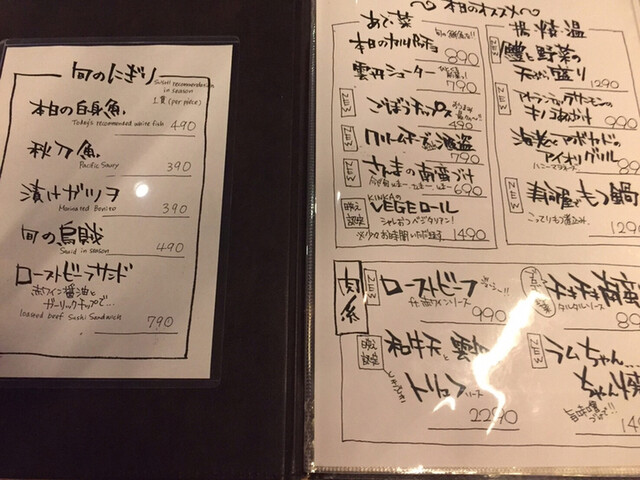 旬のにぎり
Sushi recommendation
in season
1貫 (per piece)
本日の白身魚
Today's recommended white fish
490
秋刀魚
Pacific Saury
390
漬けガツヲ
Marinated Bonito
390
旬の烏賊
Squid in season
490
ローストビーフサンド
赤ワイン醤油と
ガーリックチップで…
Roasted beef Sushi Sandwich
790
本日のオススメ
あて・菜
本日のカルパッチョ
890
雲丹シューター
790
ごぼうチップス
490
790
さんまの南蛮づけ
690
KINKAの
VEGEロール
シャレおつベジタリアン!
※少々お時間いただきます
1490
揚・焼・温
と野菜の
天ぷら盛り
1290
アトランティックサーモンの
キノコあんかけ
990
海老とアボカドの
アイオリグリル
ハニーマスタード
89
もつ鍋
こってりもつ煮込み
129
肉系
ローストビーフ
赤ワインソース
990
タルタルソース
89
和牛天と雲丹
トリュフソース
2290
ラムちゃん…
ちゃん焼
149